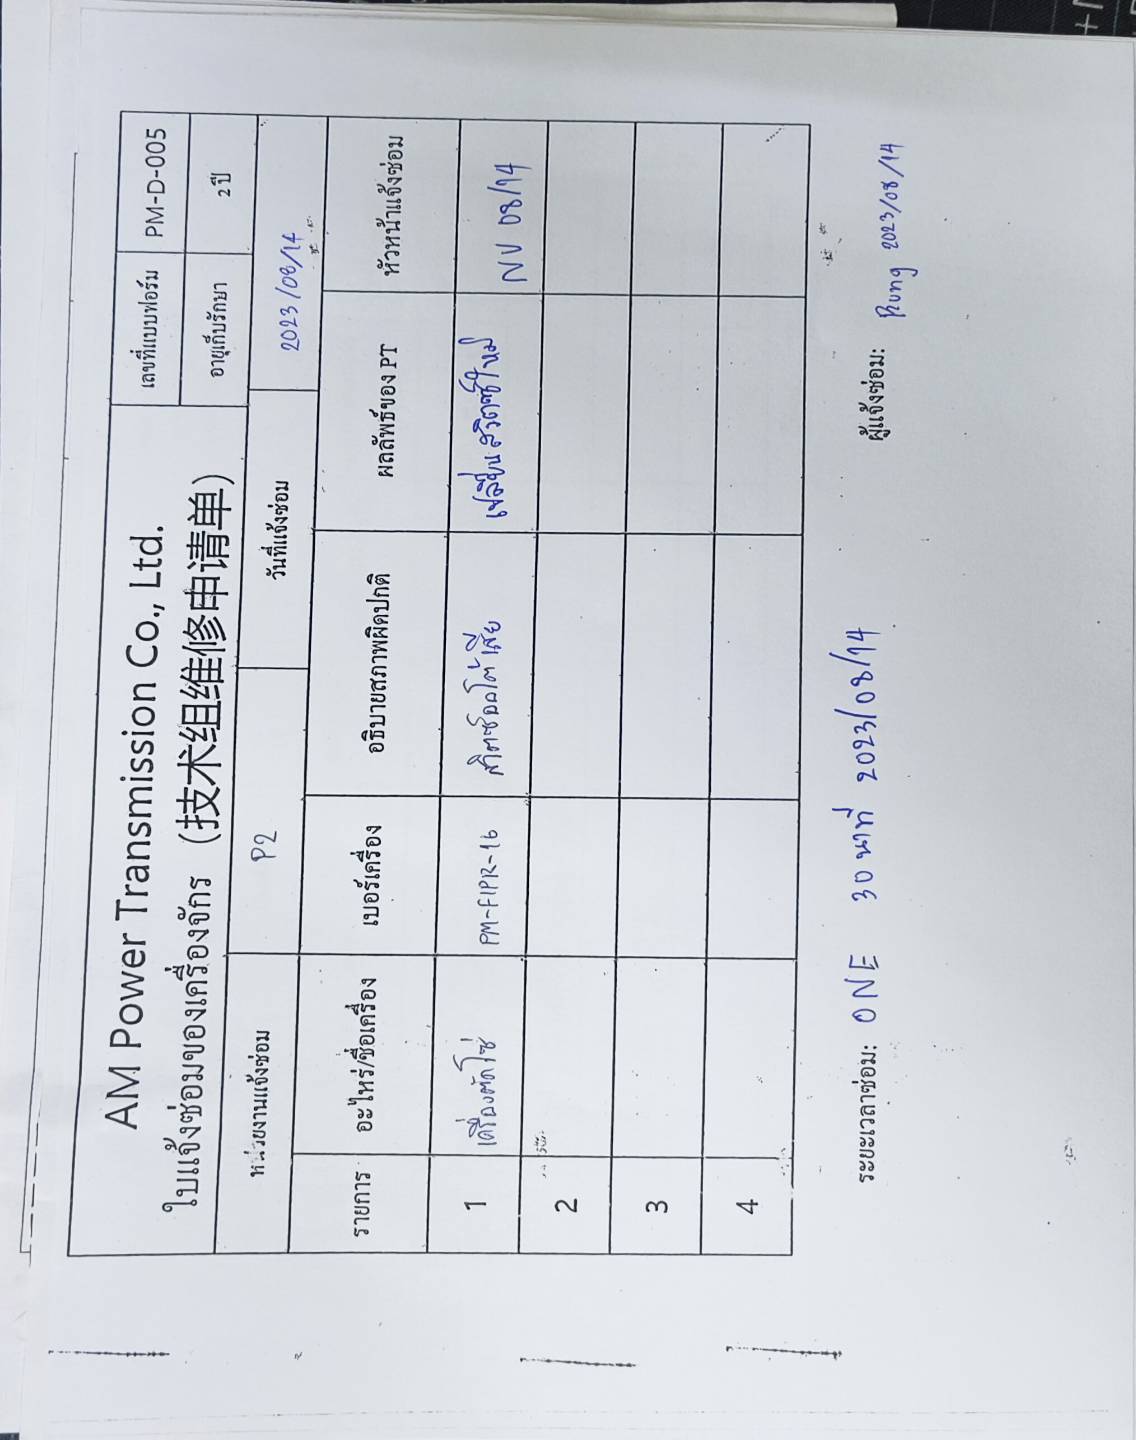 AM Power Transmission Co., Ltd.
ใบแจ้งซ่อมของเครื่องจักร (技术组维修申请单)
เลขที่แบบฟอร์ม PM-D-005
อายุเก็บรักษา 2 ปี
หน่วยงานแจ้งซ่อม P2 วันที่แจ้งซ่อม 2023/08/14
รายการ อะไหร่/ชื่อเครื่อง เบอร์เครื่อง อธิบายสภาพผิดปกติ ผลลัพธ์ของ PT หัวหน้าแจ้งซ่อม
1 เครื่องตัดโซ่ PM-FIPR-16 สวิตซ์ออโต้เสีย เปลี่ยนสวิตซ์ใหม่ NU 08/14
2
3
4
ระยะเวลาซ่อม: ONE 30 นาที 2023/08/14
ผู้แจ้งซ่อม: Rung 2023/08/14